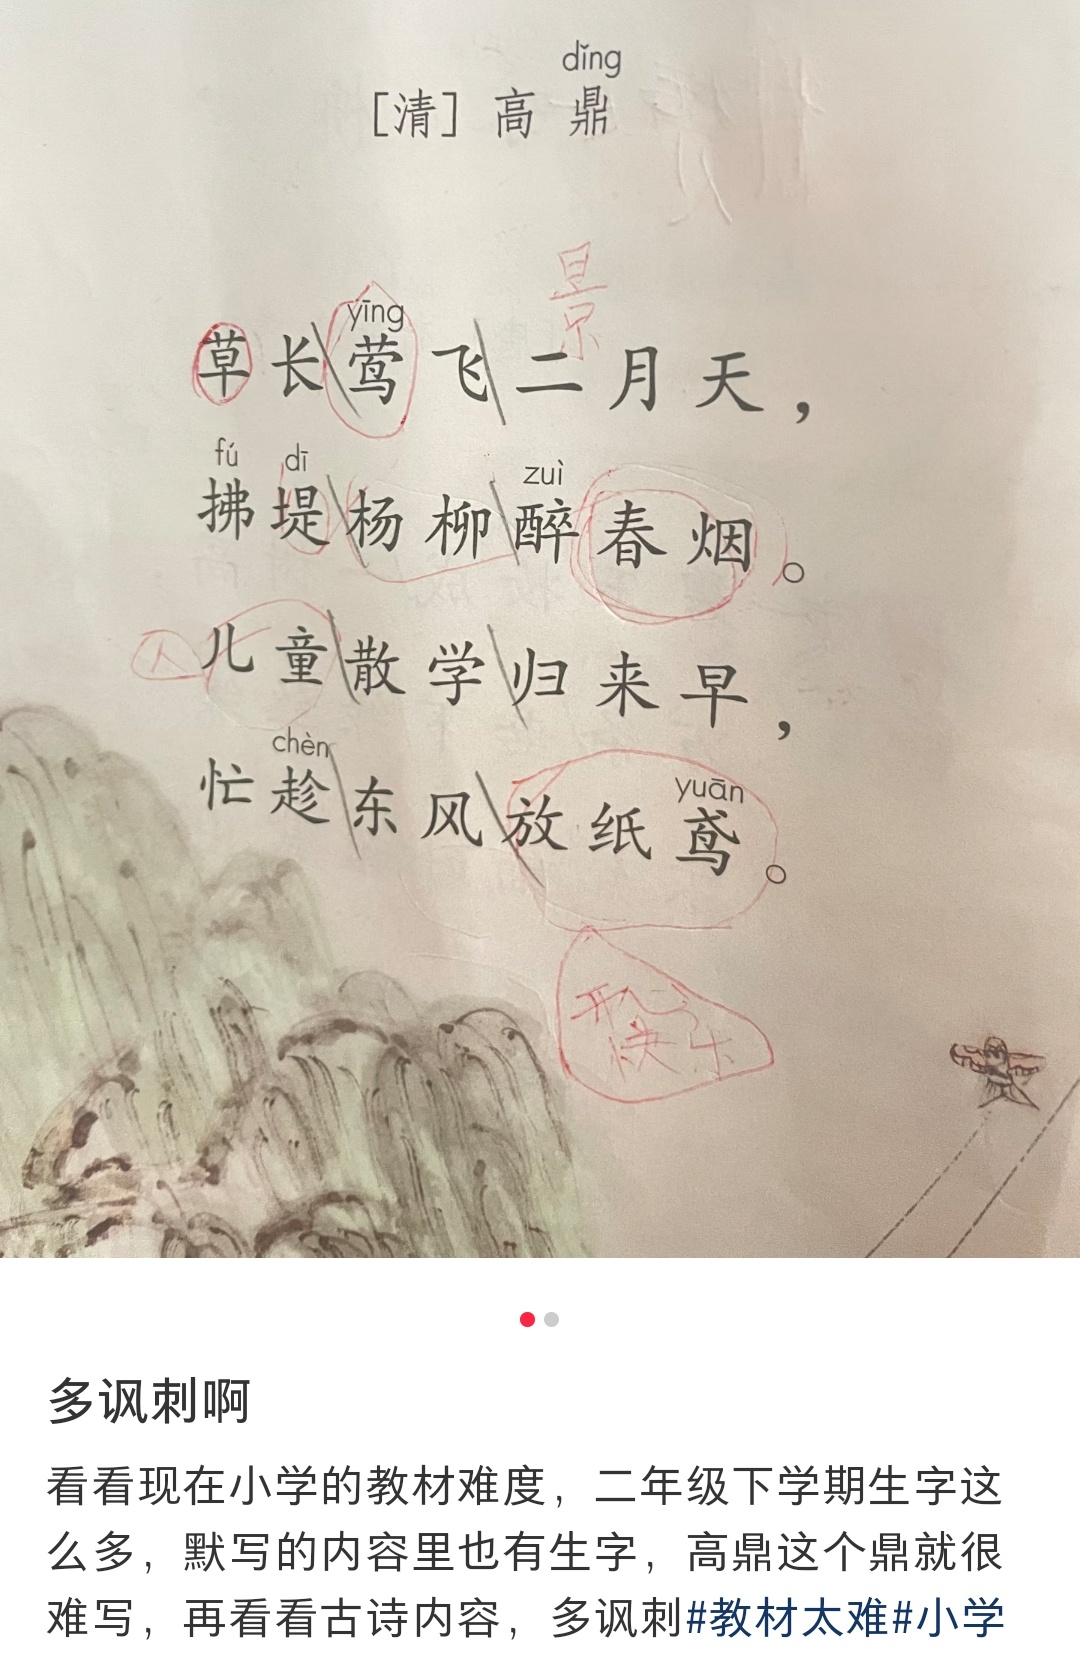 dǐng
[清] 高鼎
景
yīng
草长莺飞二月天，
fú dī zuì
拂堤杨柳醉春烟。
人
儿童散学归来早，
chèn yuān
忙趁东风放纸鸢。
快乐
多讽刺啊
看看现在小学的教材难度，二年级下学期生字这
么多，默写的内容里也有生字，高鼎这个鼎就很
难写，再看看古诗内容，多讽刺#教材太难#小学